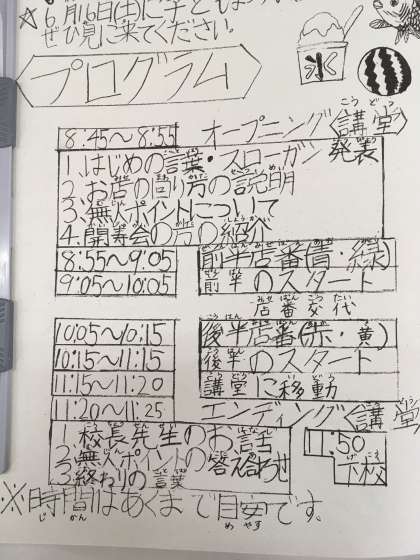 ☆6月16日(土)に
ぜひ見に来てください。
氷
プログラム
8:45〜8:55 オープニング〈講堂〉
1、はじめの言葉・スローガン発表
2、お店の回り方の説明
3、無人ポイントについて
4、開寿会の方の紹介
8:55〜9:05 前半店番(青・緑)
9:05〜10:05 前半のスタート
店番交代
10:05〜10:15 後半店番(赤・黄)
10:15〜11:15 後半のスタート
11:15〜11:20 講堂に移動
11:20〜11:25 エンディング〈講堂〉
1、校長先生のお話
2、無人ポイントの答え合わせ
3、終わりの言葉
11:50
下校
※時間はあくまで目安です。